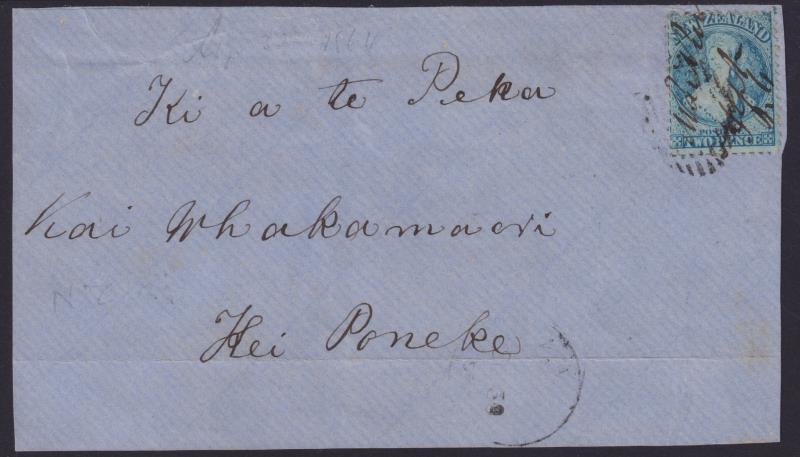 NEW ZEALAND
POSTAGE
TWO PENCE
Ki a te Peka
Kai Whakamaori
Kei Poneke